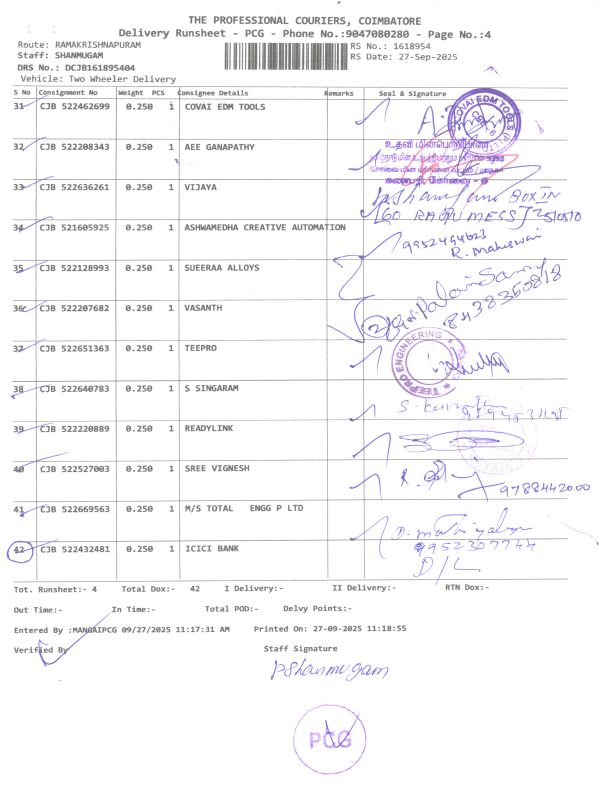 THE PROFESSIONAL COURIERS, COIMBATORE
Delivery Runsheet - PCG - Phone No.:9047080280 - Page No.:4
Route: RAMAKRISHNAPURAM RS No.: 1618954
Staff: SHANMUGAM RS Date: 27-Sep-2025
DRS No.: DCJB161895404
Vehicle: Two Wheeler Delivery
S No Consignment No Weight PCS Consignee Details Remarks Seal & Signature
31 CJB 522462699 0.250 1 COVAI EDM TOOLS
COVAI EDM TOOLS
32 CJB 522208343 0.250 1 AEE GANAPATHY
உதவி மின்பொறியாளர்
33 CJB 522636261 0.250 1 VIJAYA
BOX IN
34 CJB 521605925 0.250 1 ASHWAMEDHA CREATIVE AUTOMATION
9952494623
R. Maheswari
35 CJB 522128993 0.250 1 SUEERAA ALLOYS
36 CJB 522207682 0.250 1 VASANTH
8438360818
37 CJB 522651363 0.250 1 TEEPRO
TEEPRO ENGINEERING
38 CJB 522640783 0.250 1 S SINGARAM
39 CJB 522220889 0.250 1 READYLINK
40 CJB 522527003 0.250 1 SREE VIGNESH
9788442000
41 CJB 522669563 0.250 1 M/S TOTAL ENGG P LTD
42 CJB 522432481 0.250 1 ICICI BANK
9952307744
D/L
Tot. Runsheet:- 4 Total Dox:- 42 I Delivery:- II Delivery:- RTN Dox:-
Out Time:- In Time:- Total POD:- Delvy Points:-
Entered By :MANGAIPCG 09/27/2025 11:17:31 AM Printed On: 27-09-2025 11:18:55
Verified By Staff Signature
PShanmugam
PCG